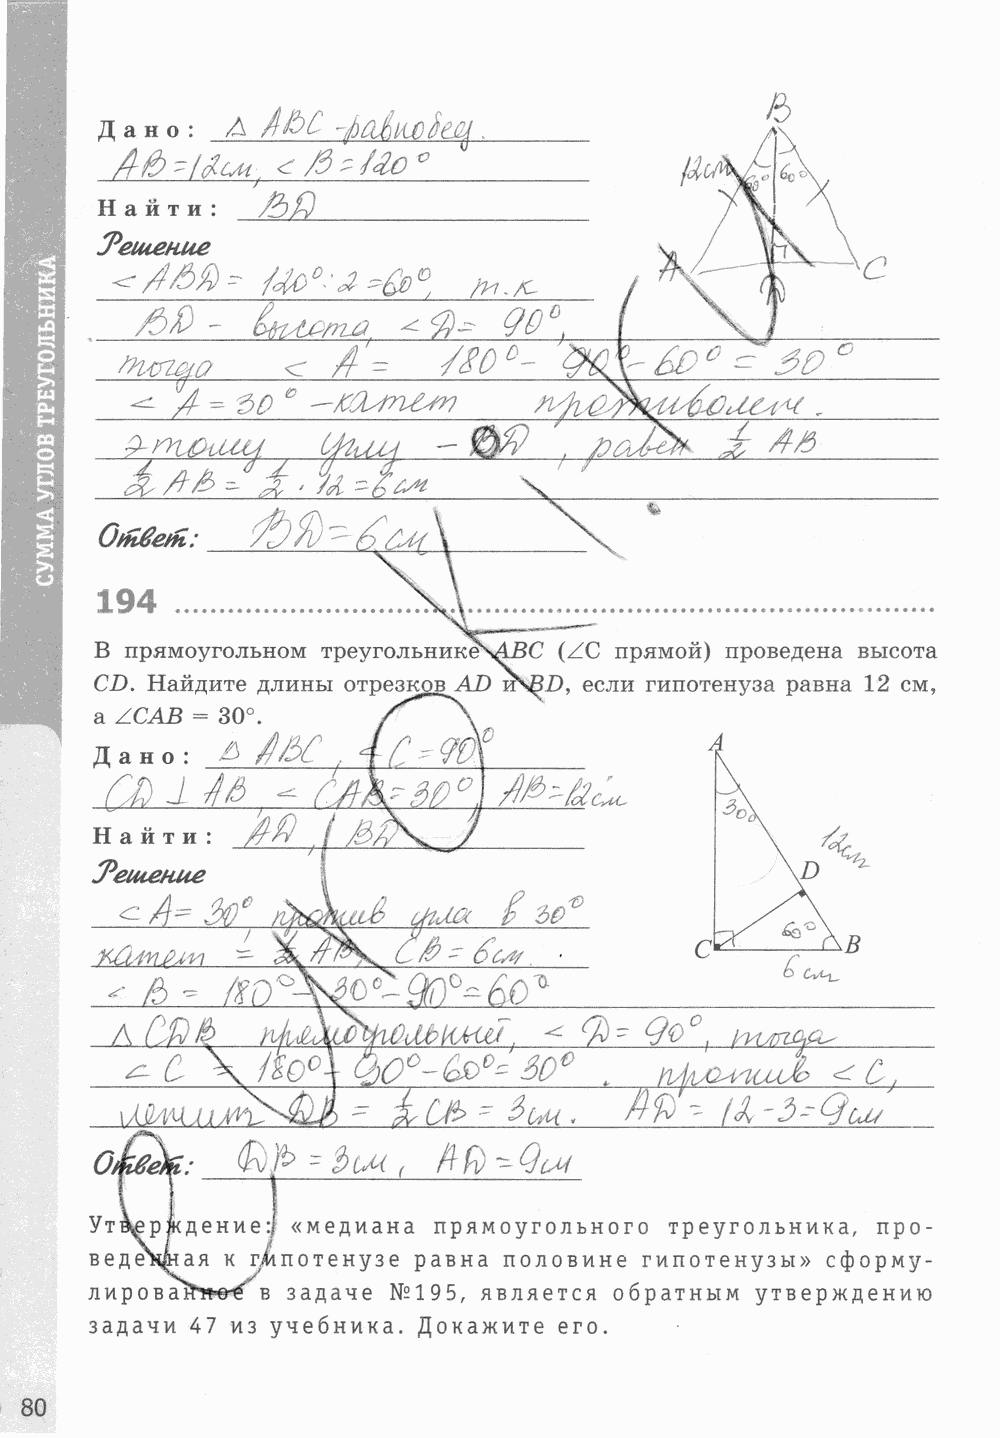 СУММА УГЛОВ ТРЕУГОЛЬНИКА
Дано: △ ABC -равнобед.
AB=12см, < B=120°
Найти: BD
Решение
< ABD = 120° : 2 =60°, т.к
BD - высота, < D= 90°,
тогда < A = 180° - 90° - 60° = 30°
< A = 30° - катет противолеж.
этому углу - BD, равен 1/2 AB
1/2 AB = 1/2 · 12 = 6 см
Ответ: BD = 6 см
B
12см
60° 60°
A
D
C
194
В прямоугольном треугольнике ABC (∠C прямой) проведена высота
CD. Найдите длины отрезков AD и BD, если гипотенуза равна 12 см,
а ∠CAB = 30°.
Дано: △ ABC, < C = 90°
CD ⊥ AB, < CAB = 30°, AB=12см
Найти: AD, BD
Решение
< A= 30°, против угла в 30°
катет = 1/2 AB, CB = 6см.
< B = 180° - 30° - 90° = 60°
△ CDB прямоугольный, < D = 90°, тогда
< C = 180° - 90° - 60° = 30°. против < C,
лежит DB = 1/2 CB = 3см. AD = 12 - 3 = 9см
Ответ: DB = 3см, AD = 9см
A
30°
12см
D
60°
C
B
6 см
Утверждение: «медиана прямоугольного треугольника, про-
веденная к гипотенузе равна половине гипотенузы» сформу-
лированное в задаче №195, является обратным утверждению
задачи 47 из учебника. Докажите его.
80